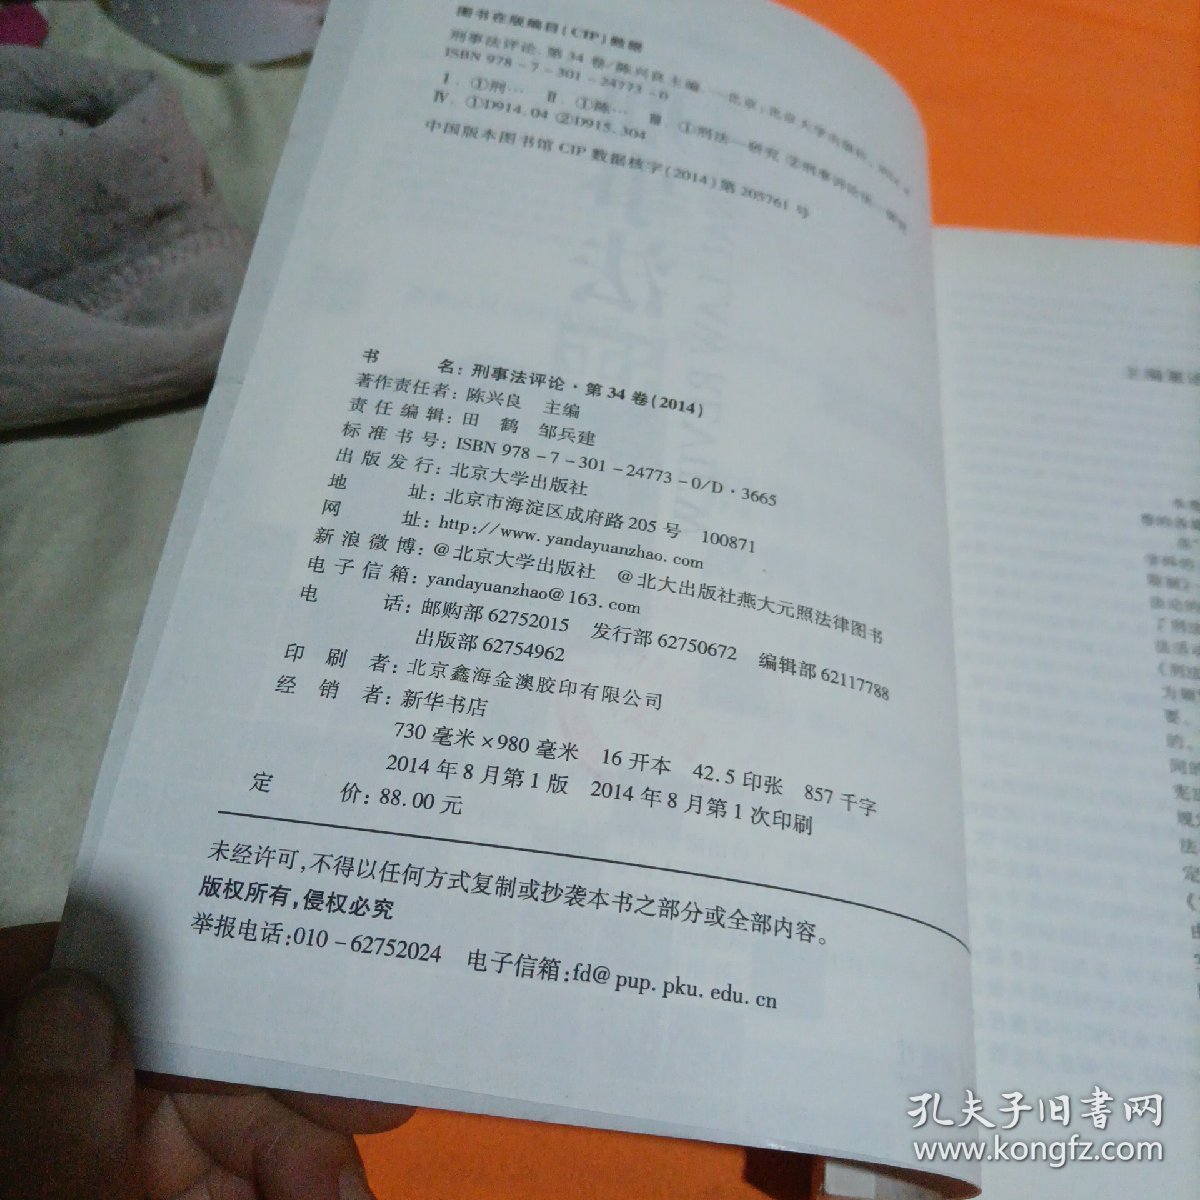 图书在版编目(CIP)数据
刑事法评论.第34卷/陈兴良主编.—北京:北京大学出版社,
ISBN 978-7-301-24773-0
Ⅰ.①刑… Ⅱ.①陈… Ⅲ.①刑法—研究②刑事诉讼法—研究
Ⅳ.①D914.04 ②D915.304
中国版本图书馆CIP数据核字(2014)第205761号
书名:刑事法评论·第34卷(2014)
著作责任者:陈兴良 主编
责任编辑:田鹤 邹兵建
标准书号:ISBN 978-7-301-24773-0/D·3665
出版发行:北京大学出版社
地址:北京市海淀区成府路205号 100871
网址:http://www.yandayuanzhao.com
新浪微博:@北京大学出版社 @北大出版社燕大元照法律图书
电子信箱:yandayuanzhao@163.com
电话:邮购部62752015 发行部62750672 编辑部62117788
出版部62754962
印刷者:北京鑫海金澳胶印有限公司
经销者:新华书店
730毫米×980毫米 16开本 42.5印张 857千字
2014年8月第1版 2014年8月第1次印刷
定价:88.00元
未经许可,不得以任何方式复制或抄袭本书之部分或全部内容。
版权所有,侵权必究
举报电话:010-62752024 电子信箱:fd@pup.pku.edu.cn
孔夫子旧书网
www.kongfz.com